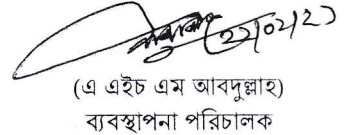 ২২/০২/২৩
(এ এইচ এম আবদুল্লাহ)
ব্যবস্থাপনা পরিচালক